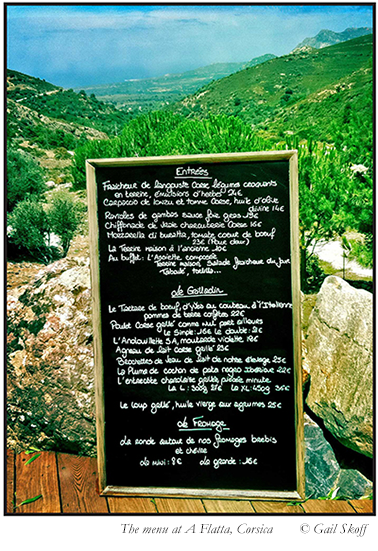 Entrées
Fraîcheur de langouste Corse légumes croquants
en terrine, émulsions d'herbes 24€
Carpaccio de lonzu et tomme Corse, huile d'olive
divine 14€
Ravioles de gambas sauce foie gras 19€
Chiffonnade de Noix charcuterie Corse 16€
Mozzarella di buffala, tomate coeur de boeuf
23€ (Pour deux)
La Terrine maison à l'ancienne 10€
Au buffet : L'Assiette composée
Terrine maison, Salade fraîcheur du jour
Taboulé, tortilla...
Le Galladin
Le Tartare de boeuf, d'ytes au couteau à l'Italienne
pommes de terre coffites 22€
Poulet Corse grillé comme nul part ailleurs
Le simple : 16€ le double : 21€
L'Andouillette 5A, moutarde violette 19€
Agneau de lait Corse grillé 25€
Brochettes de veau de lait de notre élevage 25€
La Pluma de cochon de pata negra Ibérique 22€
L'entrecôte charolaise grillée pleine minute
La L : 300g 27€ La XL : 450g 35€
Le loup grillé, huile vierge aux agrumes 25€
Le Fromage
La ronde autour de nos fromages brebis
et chèvre
La mini : 8€ La grande : 16€
The menu at A Flatta, Corsica © Gail Skoff